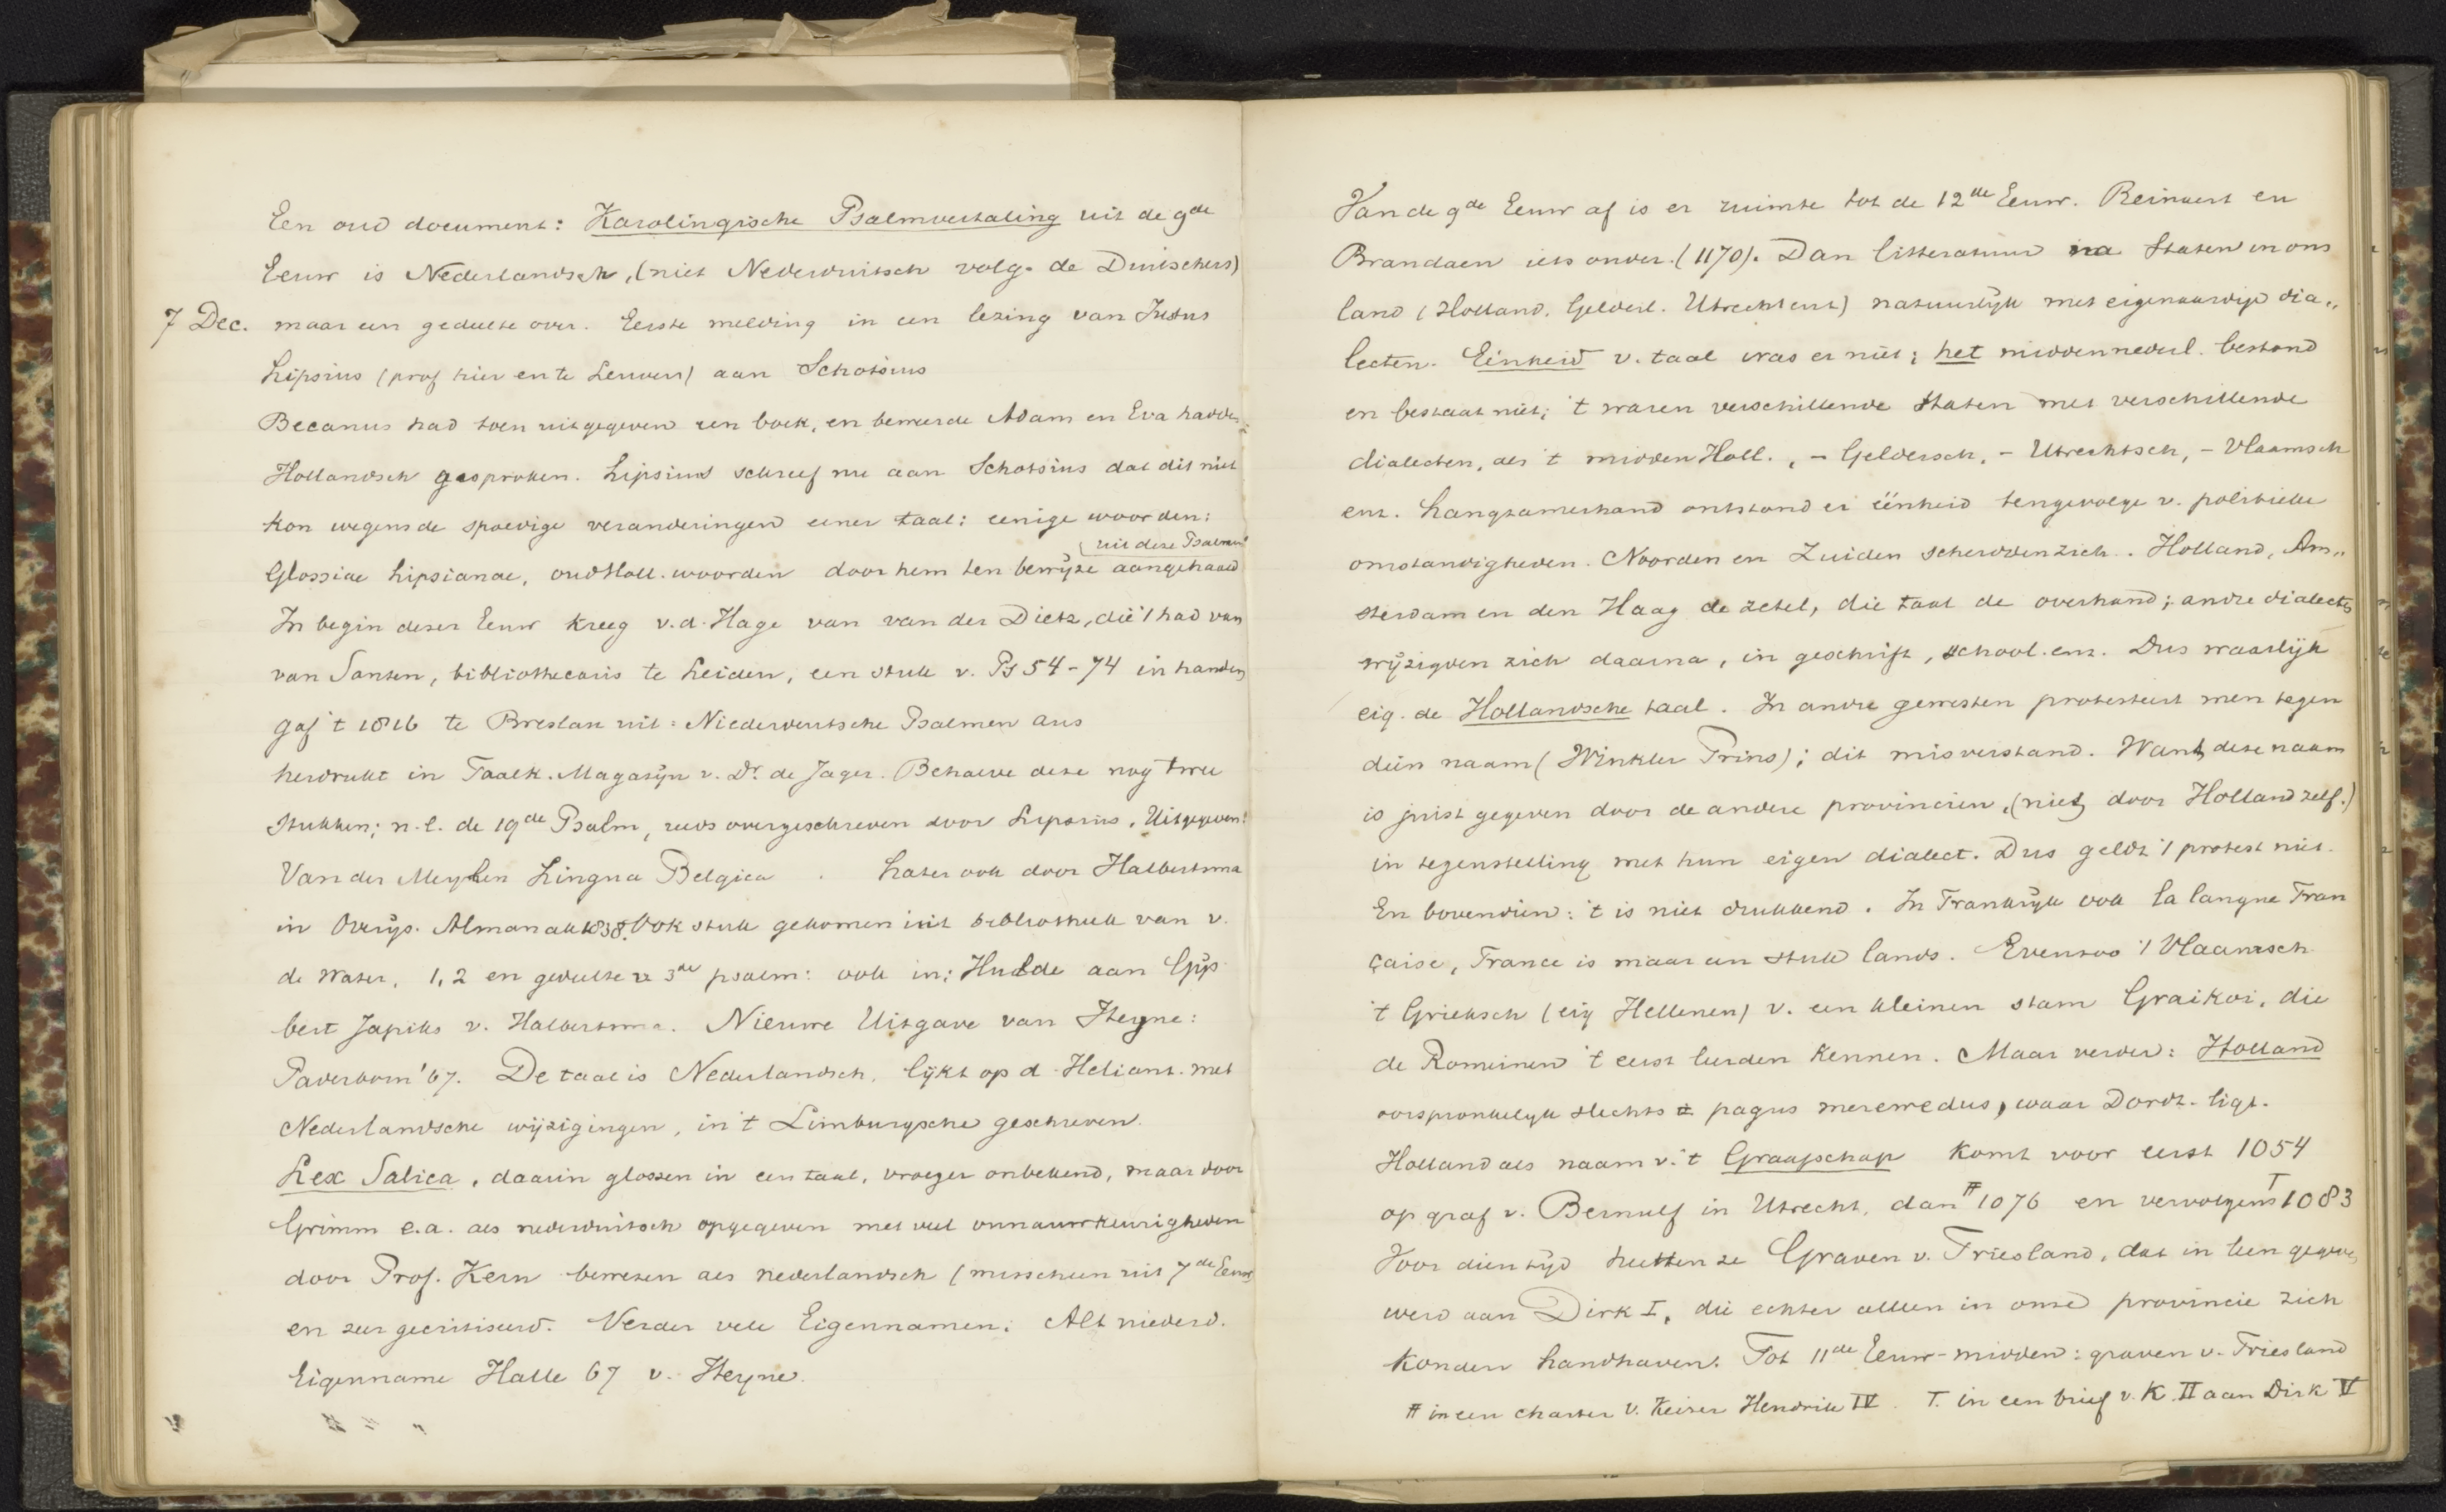 Een oud document: Karolingische Psalmvertaling uit de 9de
Eeuw is Nederlandsch, (niet Nederduitsch volg. de Duitschers)
7 Dec. maar een gedeelte over. Eerste melding in een lezing van Justus
Lipsius (prof hier en te Leuven) aan Schotsius
Becanus had toen uitgegeven een boek, en beweerde Adam en Eva hadden
Hollandsch gesproken. Lipsius schreef nu aan Schotsius dat dit niet
kon wegens de spoedige veranderingen eener taal: eenige woorden:
uit deze Psalmen
Glossiae Lipsianae, oud Holl. woorden door hem ten bewijze aangehaald
In begin dezer Eeuw kreeg v.d. Hage van van der Dietz, die 't had van
van Santen, bibliothecaris te Leiden, een stuk v. Ps 54-74 in handen
gaf 't 1816 te Breslau uit: Niederdeutsche Psalmen aus
herdrukt in Taalk. Magazijn v. Dr. de Jager. Behalve deze nog twee
stukken; n.l. de 19de Psalm, reeds overgeschreven door Lipsius. Uitgegeven:
Van der Meylen Lingua Belgica . Later ook door Halbertsma
in Overijs. Almanak 1838. Ook stuk gekomen uit bibliotheek van v.
de Water, 1, 2 en gedeelte v 3de psalm: ook in: Hulde aan Gijs
bert Japiks v. Halbertsma. Nieuwe Uitgave van Heyne:
Paderborn '67. De taal is Nederlandsch, lijkt op d. Heliant. met
Nederlandsche wijzigingen, in 't Limburgsche geschreven.
Lex Salica, daarin glossen in een taal, vroeger onbekend, maar door
Grimm e.a. als nederduitsch opgegeven met veel onnauwkeurigheden
door Prof. Kern bewezen als nederlandsch (misschien uit 7de Eeuw)
en zeer gecritiseerd. Verder vele Eigennamen: Alt niederd.
Eigenname Halle 67 v. Heyne.
Van de 9de Eeuw af is er ruimte tot de 12de Eeuw. Reinaert en
Brandaen iets ouder. (1170). Dan litteratuur na Staten in ons
land (Holland. Gelderl. Utrecht enz) natuurlijk met eigenaardige dia„
lecten. Eénheid v. taal was er niet; het middennederl. bestond
en bestaat niet; 't waren verschillende Staten met verschillende
dialecten, als 't midden Holl., - Geldersch, - Utrechtsch, - Vlaamsch
enz. Langzamerhand ontstond er éénheid tengevolge v. politieke
omstandigheden. Noorden en Zuiden scheidden zich. Holland, Am„
sterdam en den Haag de zetel, die taal de overhand; andre dialects
wijzigden zich daarna, in geschrift, school. enz. Dus waarlijk
eig. de Hollandsche taal. In andre gewesten protesteert men tegen
dien naam (Winkler Prins); dit misverstand. Want deze naam
is juist gegeven door de andere provinciën, (niet door Holland zelf.)
in tegenstelling met hun eigen dialect. Dus geldt 't protest niet.
En bovendien: 't is niet drukkend. In Frankrijk ook la langue Fran
çaise, France is maar een stuk lands. Evenzoo 't Vlaamsch
't Grieksch (eig Hellenen) v. een kleinen stam Graikoi, die
de Romeinen 't eerst leerden kennen. Maar verder: Holland
oorspronkelijk slechts pagus merewedus, waar Dordt. ligt.
Holland als naam v. 't Graafschap komt voor eerst 1054
op graf v. Bernulf in Utrecht, dan # 1076 en vervolgens T 1083
Voor dien tijd heetten ze Graven v. Friesland, dat in leen gegeven
werd aan Dirk I, die echter alleen in onze provincie zich
konden handhaven. Tot 11de Eeuw-midden: graven v. Friesland
# in een charter v. Keizer Hendrik IV. T. in een brief v. K. II aan Dirk V